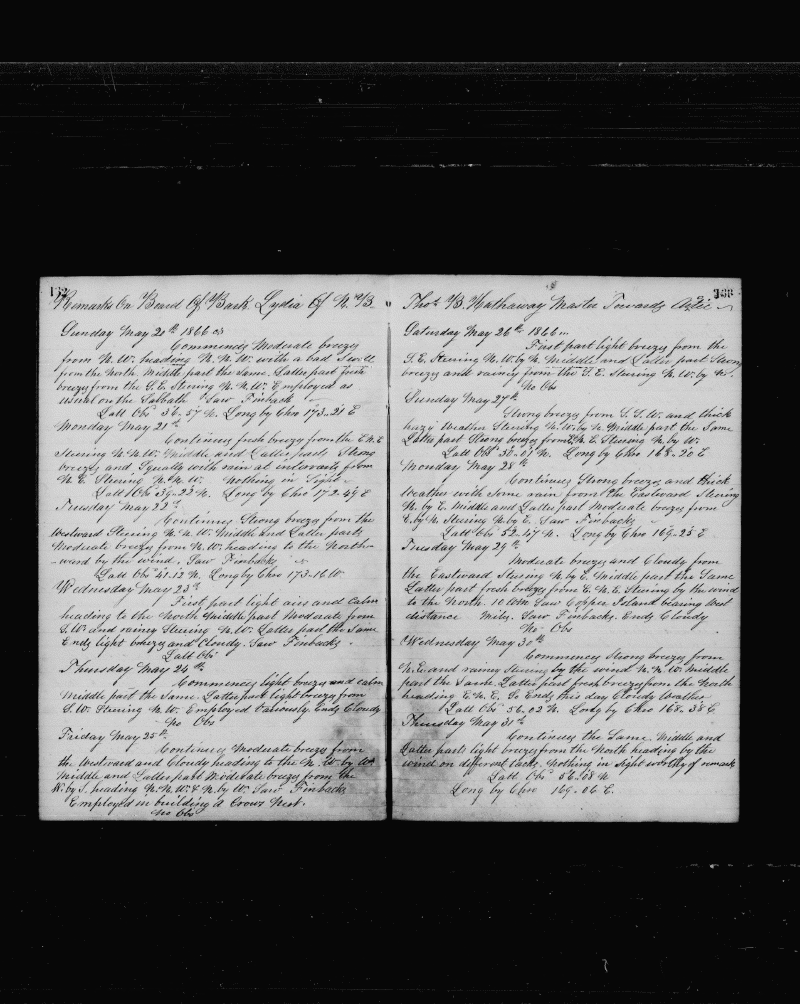 132
Remarks On Board Of Bark Lydia Of N. B.
Sunday May 20th 1866
Commences Moderate breezes
from N.W. heading N.N.W. with a bad Swell
from the North. Middle part the same. Latter part fresh
breezes from the S.E. Steering N.N.W. Employed as
usual on the Sabbath Saw Finback
Latt Obs 36-57 N. Long by Chro 173-21 E
Monday May 21st
Continues fresh breezes from the E.N.E
Steering N.N.W. Middle and Latter parts Strong
breezes and Squally with rain at intervals from
N.E. Steering N.N.W. Nothing in Sight
Latt Obs 39-22 N. Long by Chro 172-49 E
Tuesday May 22nd
Continues Strong breezes from the
Westward Steering N.N.W. Middle and Latter parts
Moderate breezes from N.W. heading to the North-
-ward by the wind. Saw Finbacks
Latt Obs 41-12 N. Long by Chro 173-16 W
Wednesday May 23rd
First part light airs and calm
heading to the North Middle part Moderate from
S.W. and rainy Steering N.W. Latter part the Same
Ends light breezes and Cloudy. Saw Finbacks.
Latt Obs
Thursday May 24th
Commences light breezes and calm
Middle part the Same. Latter part light breezes from
S.W. Steering N.W. Employed Variously. Ends Cloudy
No Obs
Friday May 25th
Continues Moderate breezes from
the Westward and Cloudy heading to the N.W. by W
Middle and Latter part Moderate breezes from the
W. by S. heading N.N.W. & N. by W. Saw Finbacks
Employed in building a Crows Nest.
No Obs
133
Thos B. Hathaway Master Towards Artic
Saturday May 26th 1866
First part light breezes from the
S.E. Steering N.W. by N. Middle and Latter part Strong
breezes and rainey from the S.E. Steering N.W. by N.
No Obs
Sunday May 27th
Strong breezes from S.S.W. and thick
hazy Weather Steering N.W. by N. Middle part the Same
Latter part Strong breezes from E.N.E. Steering N. by W.
Latt Obs 50-01 N. Long by Chro 168-20 E
Monday May 28th
Continues Strong breezes and thick
Weather with some rain from the Eastward Steering
N. by E. Middle and Latter part Moderate breezes from
E. by N. Steering N. by E. Saw Finbacks
Latt Obs 52-47 N. Long by Chro 169-25 E
Tuesday May 29th
Moderate breezes and Cloudy from
the Eastward Steering N. by E. Middle part the Same
Latter part fresh breezes from E.N.E. Steering by the wind
to the North. 10 AM Saw Copper Island bearing West
distance Miles. Saw Finbacks. Ends Cloudy
No Obs
Wednesday May 30th
Commences Strong breezes from
N.E. and rainey Steering by the wind N.N.W. Middle
part the Same. Latter part fresh breezes from the North
heading E.N.E. So Ends this day Cloudy Weather
Latt Obs 56-02 N. Long by Chro 168-38 E
Thursday May 31st
Continues the Same. Middle and
Latter parts light breezes from the North heading by the
wind on different tacks. Nothing in sight worthy of remark
Latt Obs 56-08 N
Long by Chro 169-06 E.